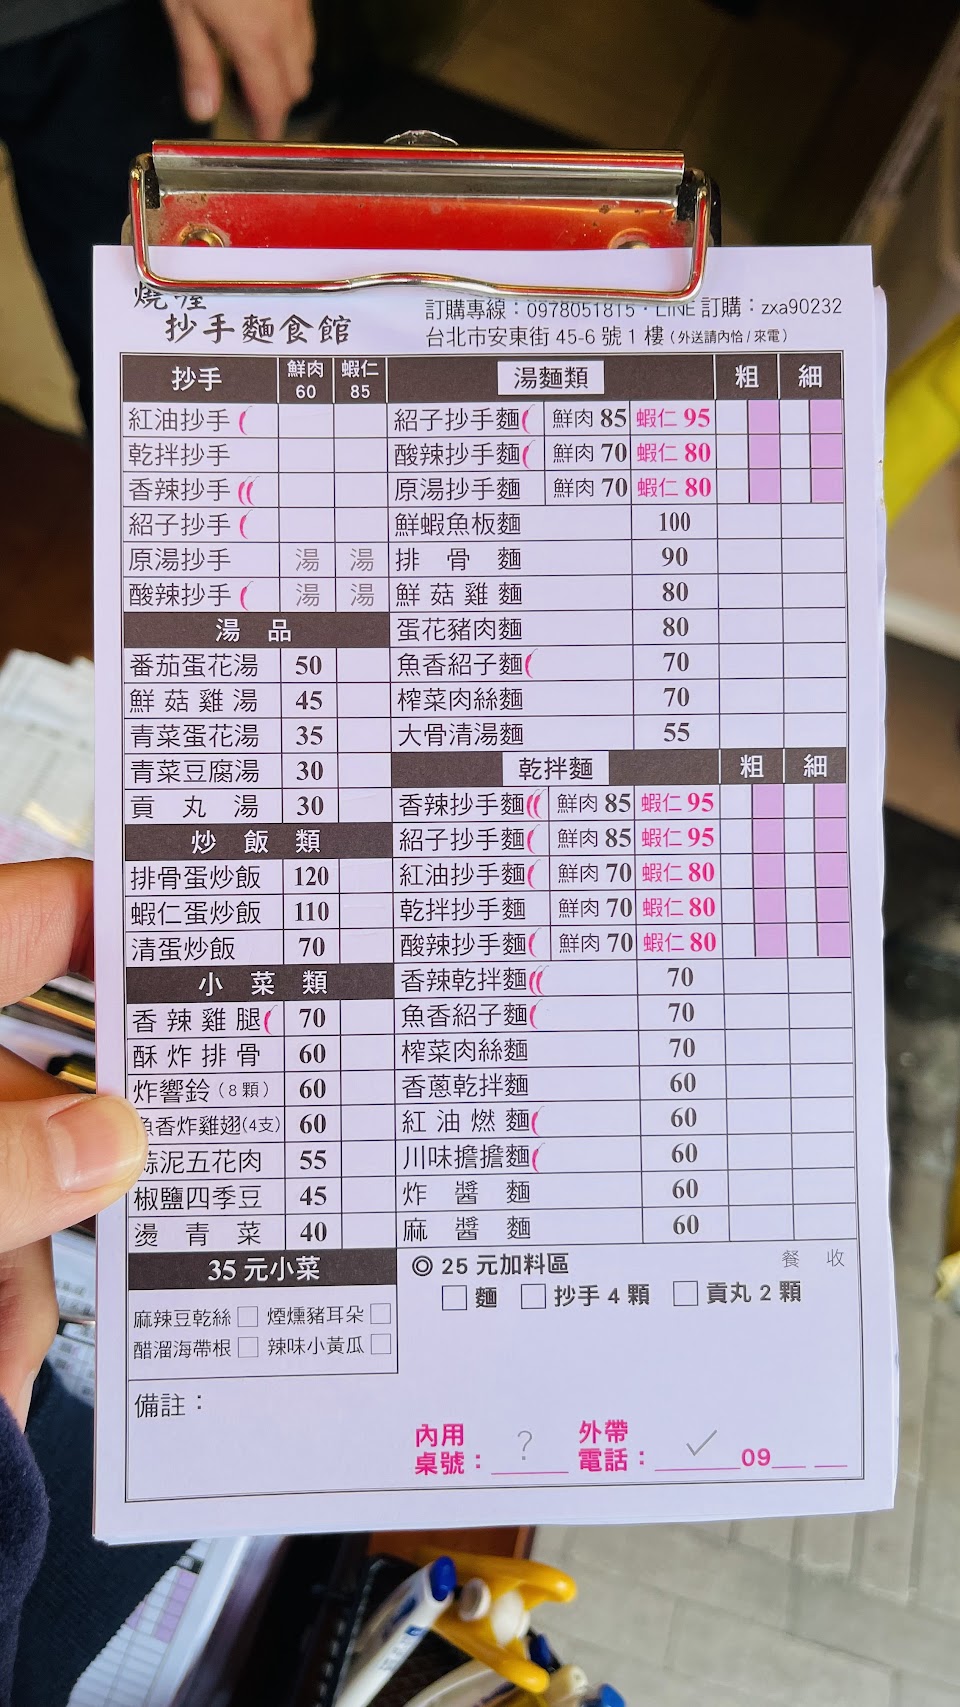 抄手麵食館
訂購專線：0978051815．LINE 訂購：zxa90232
台北市安東街 45-6 號 1 樓（外送請內恰 / 來電）
抄手 鮮肉 60 蝦仁 85
紅油抄手
乾拌抄手
香辣抄手
紹子抄手
原湯抄手 湯 湯
酸辣抄手 湯 湯
湯品
番茄蛋花湯 50
鮮菇雞湯 45
青菜蛋花湯 35
青菜豆腐湯 30
貢丸湯 30
炒飯類
排骨蛋炒飯 120
蝦仁蛋炒飯 110
清蛋炒飯 70
小菜類
香辣雞腿 70
酥炸排骨 60
炸響鈴（8顆） 60
魚香炸雞翅(4支) 60
蒜泥五花肉 55
椒鹽四季豆 45
燙青菜 40
35 元小菜
麻辣豆乾絲 □ 煙燻豬耳朵 □
醋溜海帶根 □ 辣味小黃瓜 □
湯麵類 粗 細
紹子抄手麵 鮮肉 85 蝦仁 95
酸辣抄手麵 鮮肉 70 蝦仁 80
原湯抄手麵 鮮肉 70 蝦仁 80
鮮蝦魚板麵 100
排骨麵 90
鮮菇雞麵 80
蛋花豬肉麵 80
魚香紹子麵 70
榨菜肉絲麵 70
大骨清湯麵 55
乾拌麵 粗 細
香辣抄手麵 鮮肉 85 蝦仁 95
紹子抄手麵 鮮肉 85 蝦仁 95
紅油抄手麵 鮮肉 70 蝦仁 80
乾拌抄手麵 鮮肉 70 蝦仁 80
酸辣抄手麵 鮮肉 70 蝦仁 80
香辣乾拌麵 70
魚香紹子麵 70
榨菜肉絲麵 70
香蔥乾拌麵 60
紅油燃麵 60
川味擔擔麵 60
炸醬麵 60
麻醬麵 60
◎ 25 元加料區 餐 收
□ 麵 □ 抄手 4 顆 □ 貢丸 2 顆
備註：
內用 外帶
桌號： ? 電話： ✓ 09